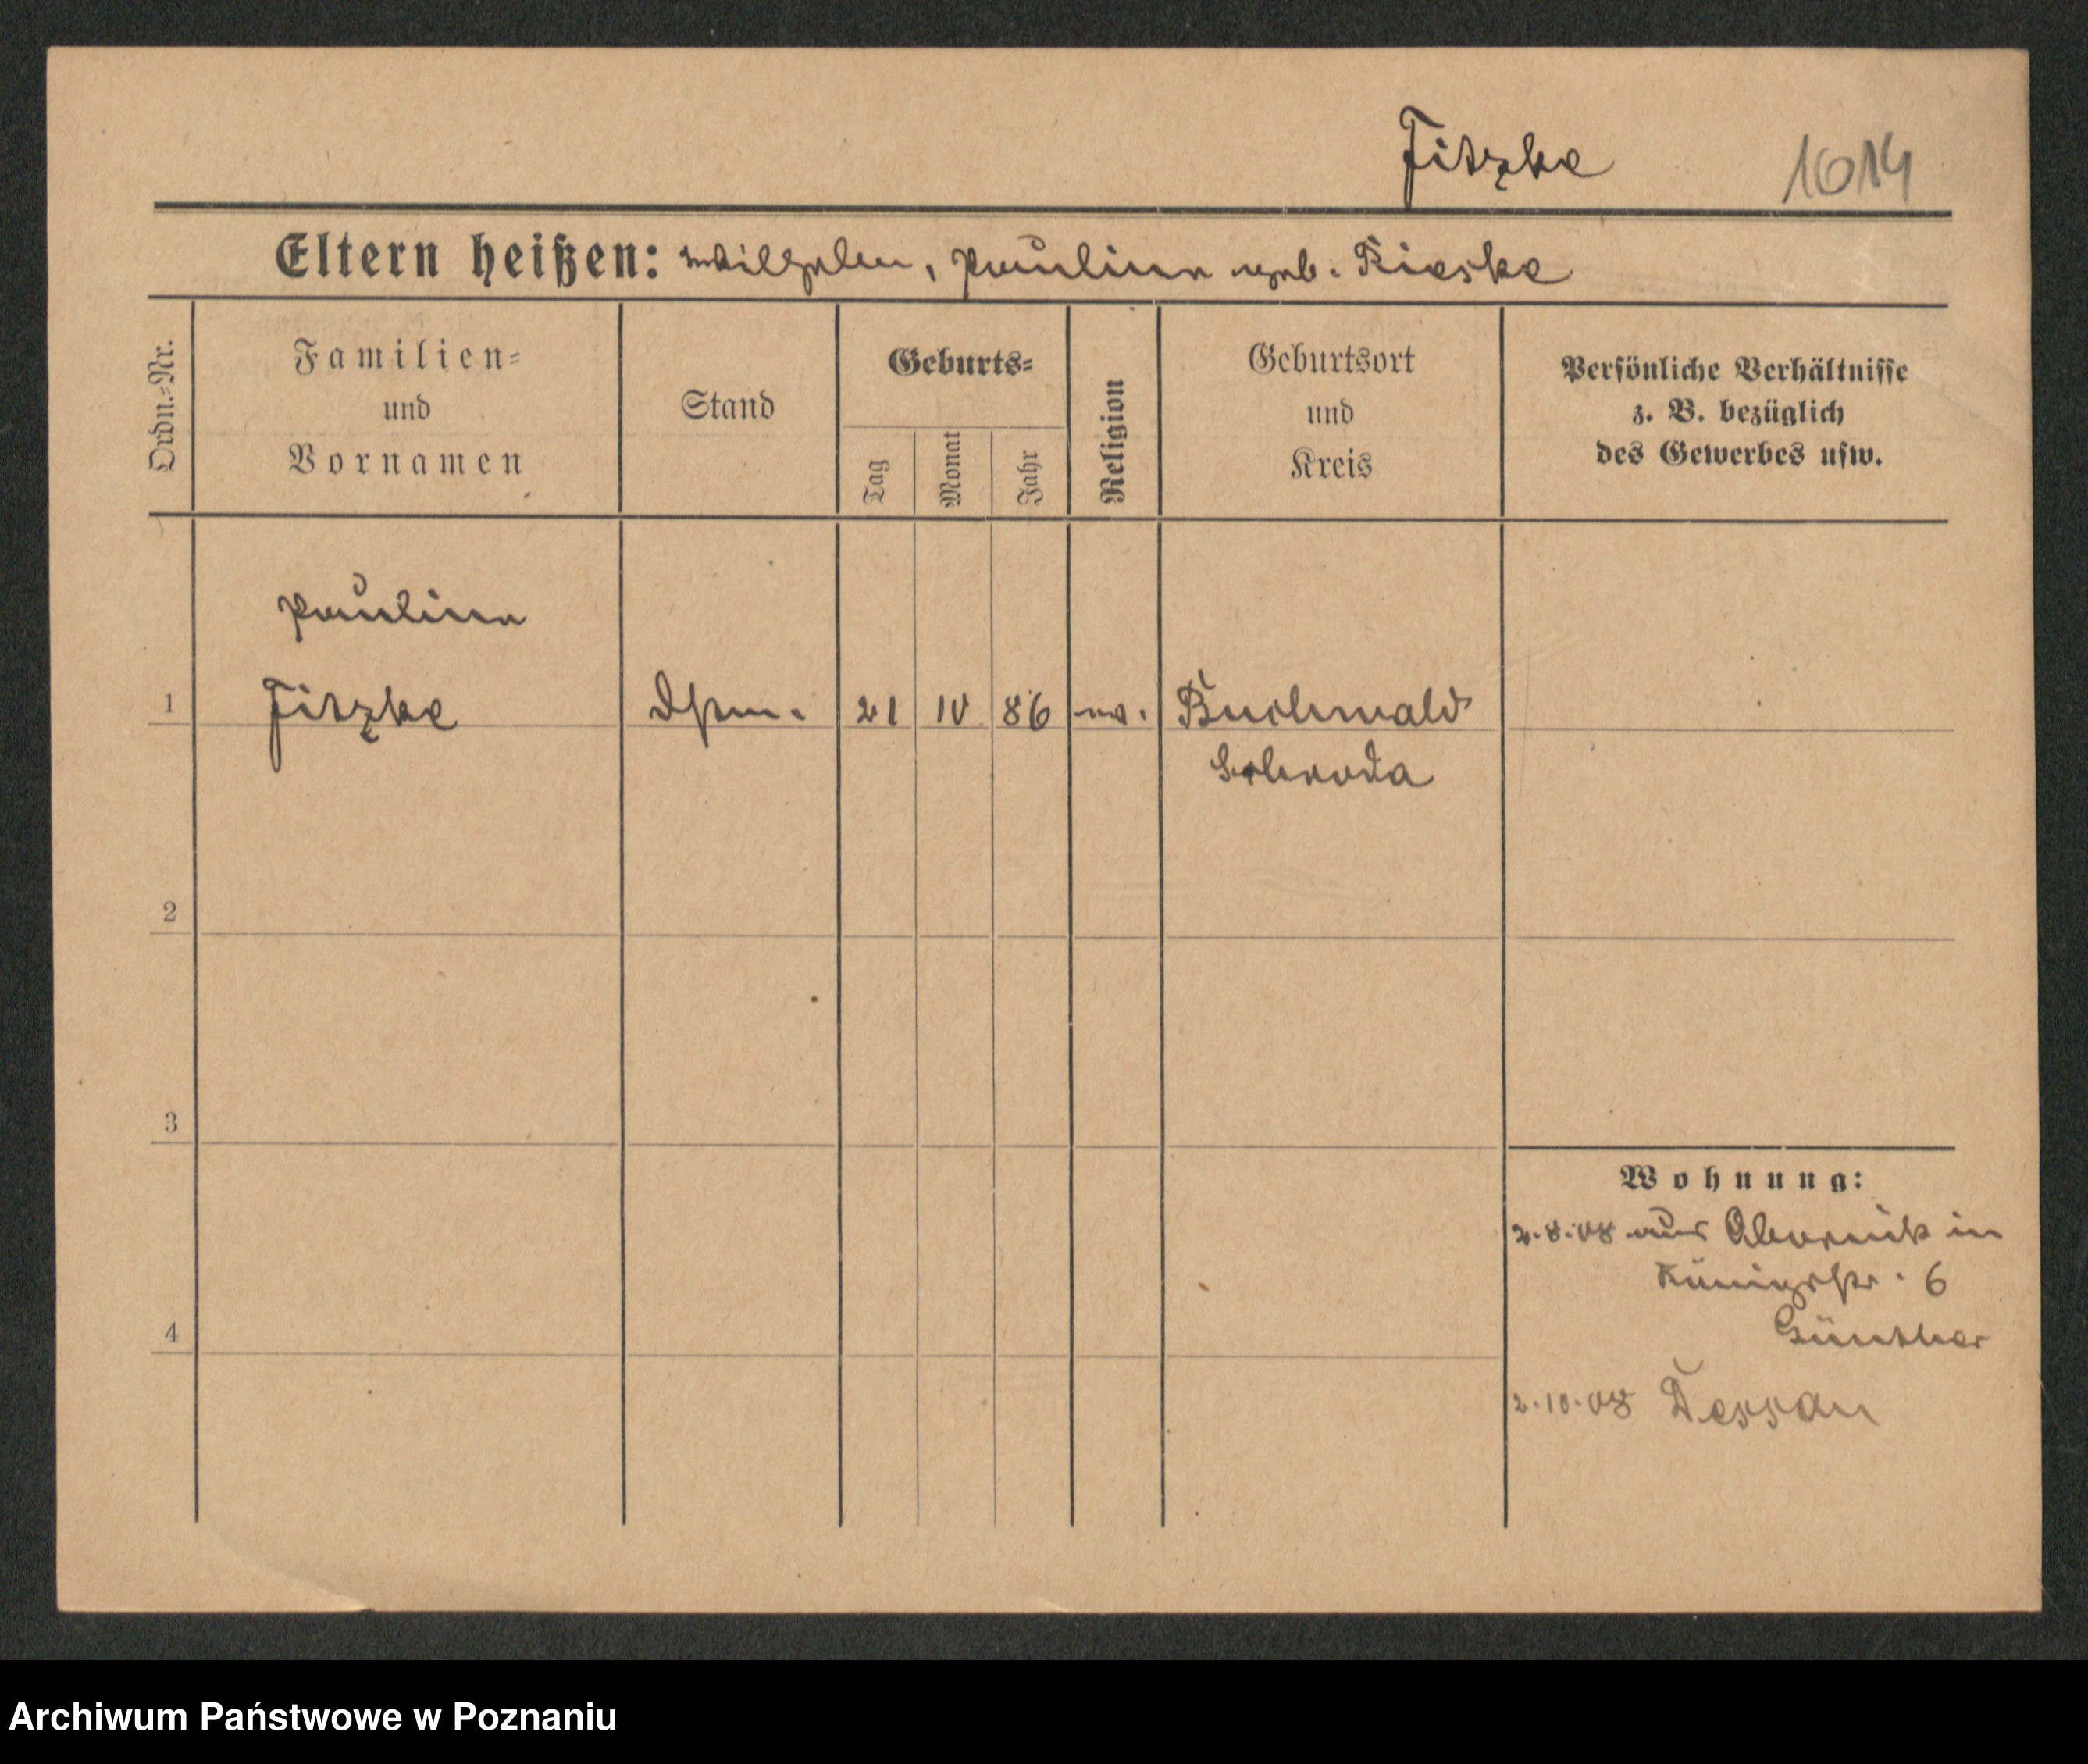 Fitzke 1614
Eltern heißen: Wilhelm, Pauline geb. Kieske
Ordn.=Nr.
Familien=
und
Vornamen
Stand
Geburts=
Tag
Monat
Jahr
Religion
Geburtsort
und
Kreis
Persönliche Verhältnisse
z. B. bezüglich
des Gewerbes usw.
Pauline
1 Fitzke 21 IV 86 ev. Buchwald
2
3
Wohnung:
2.8.08 aus Obornik in
Königstr. 6
4
Günther
2.10.08 Dessau
Archiwum Państwowe w Poznaniu